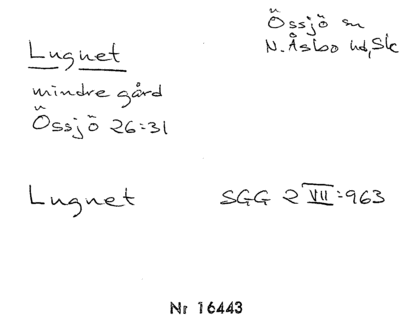 Össjö sn
N. Åsbo hd, Sk
Lugnet
mindre gård
Össjö 26:31
Lugnet SGG 2 VII:963
Nr 16443